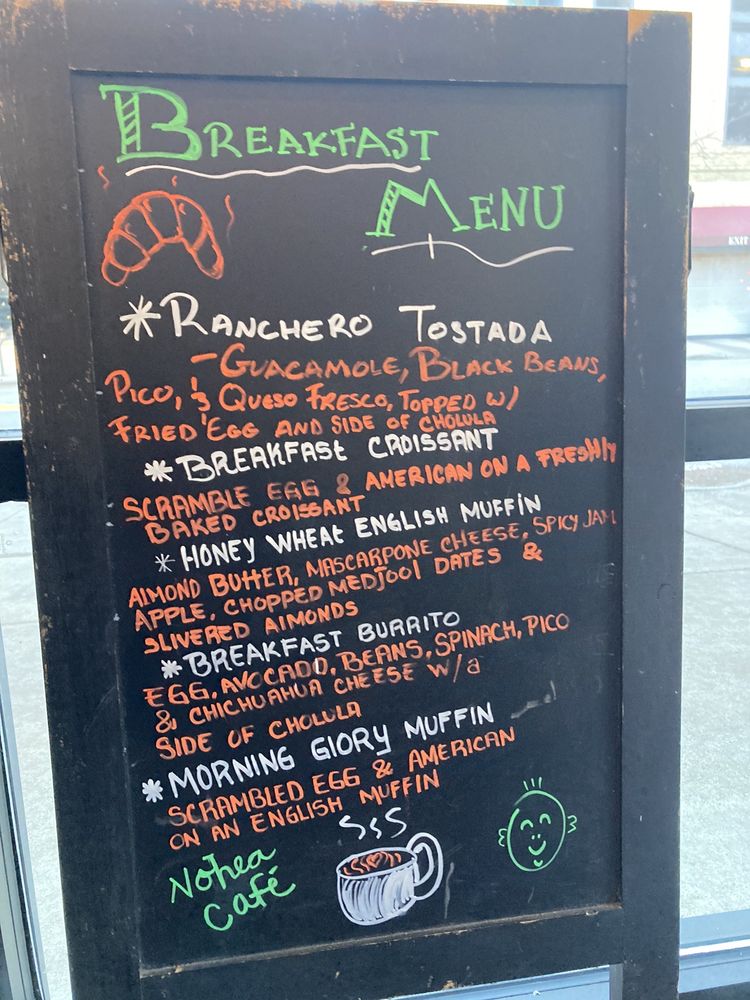 BREAKFAST
MENU
*RANCHERO TOSTADA
-GUACAMOLE, BLACK BEANS,
PICO, & QUESO FRESCO, TOPPED W/
FRIED EGG AND SIDE OF CHOLULA
*BREAKFAST CROISSANT
SCRAMBLE EGG & AMERICAN ON A FRESHLY
BAKED CROISSANT
*HONEY WHEAT ENGLISH MUFFIN
ALMOND BUTTER, MASCARPONE CHEESE, SPICY JAM
APPLE, CHOPPED MEDJOOL DATES &
SLIVERED ALMONDS
*BREAKFAST BURRITO
EGG, AVOCADO, BEANS, SPINACH, PICO
& CHICHUAHUA CHEESE W/a
SIDE OF CHOLULA
*MORNING GLORY MUFFIN
SCRAMBLED EGG & AMERICAN
ON AN ENGLISH MUFFIN
Nohea
Café
EXIT